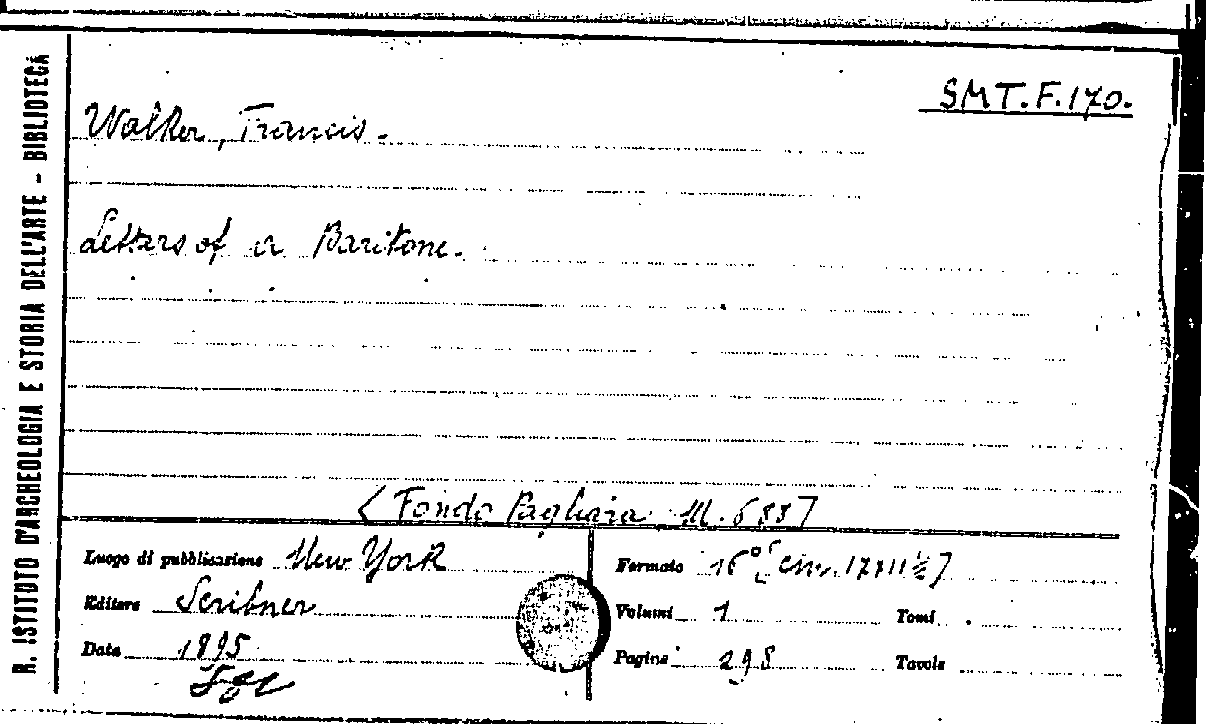 R. ISTITUTO D'ARCHEOLOGIA E STORIA DELL'ARTE - BIBLIOTECA
SMT.F.170.
Walker, Francis.
Letters of a Baritone.
[Fondo Pagliara M. 688]
Luogo di pubblicazione New York
Editore Scribner
Data 1895
Formato 16° [cm. 17x11½]
Volumi 1 Tomi
Pagine 298 Tavole